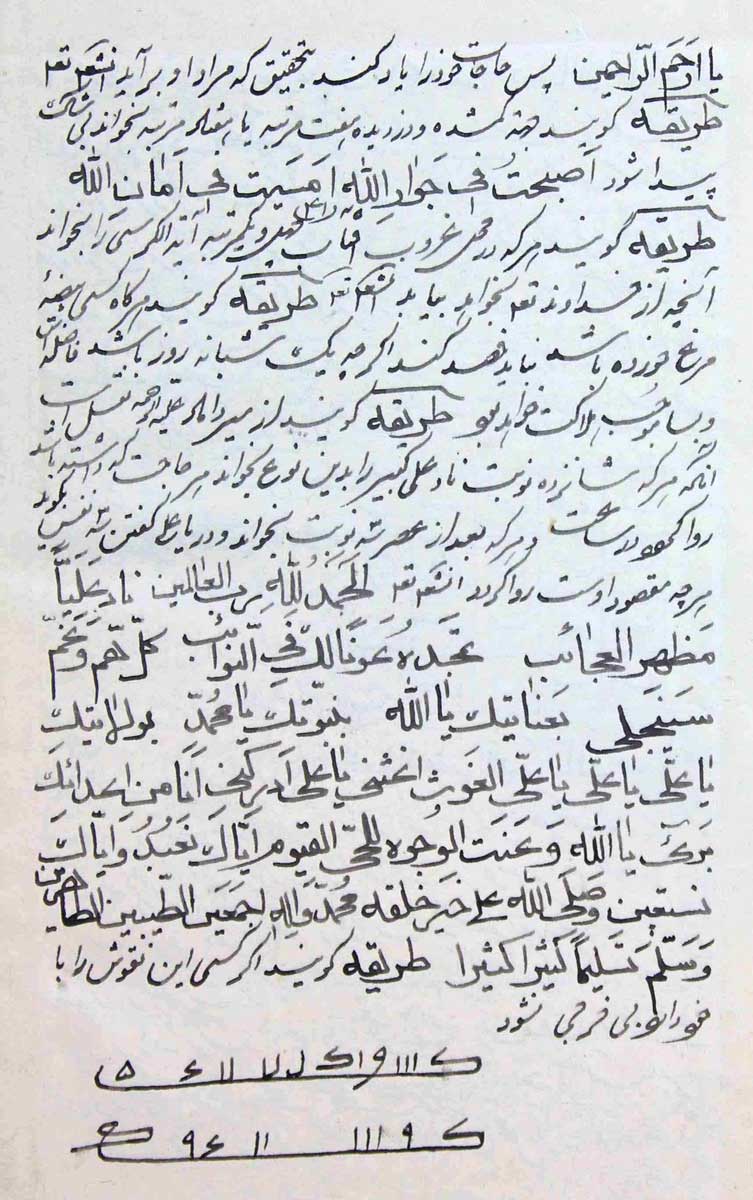 یا ارحم الرّاحمین پس حاجات خود را یاد کند بتحقیق که مراد او بر آید انشعم تعه
طریقه گویند جهة گمشده و دزدیده هفت مرتبه یا هفتاد مرتبه بخواند بی شک
پیدا شود اَصبحتُ فی جَوارِ اللّهِ اَمسَیت فی اَمان اللّه
طریقه گویند هر که در محل غروب افتاب و یکمرتبه آیة الکرسی را بخواند
آنچه از خداوند تعه بخواهد بیابد انشعم تعه طریقه گویند هر گاه کسی بیضه
مرغ خورده باشد نباید فصد کند اگر چه یک شبانه روز باشد فاصله
و بسا موجب هلاکت خواهد بود طریقه گویند از میر داماد علیه الرحمه نقل است
آنکه هر که شانزده نوبت ناد علی کبیر را بدین نوع بخواند هر حاجت که داشته باشد
روا گردد در ساعت و هر که بعد از عصر سه نوبت بخواند و در یا علی گفتن نفس
هر چه مقصود اوست روا گردد انشعم تعه اَلحَمدُ لِلّهِ ربّ العالمین نادِ عَلیّاً
مَظهر العجائب تجَدهُ عَوناً لَکَ فی النّوائب کلّ همّ وَ غمّ
سَیَنجَلی بعَنایتِک یا اللّه بنبوّتک یا محُمدّ بولایتک
یا علیّ یا علیّ یا علیّ الغوث اغثنی یا علی ادرکنی اَنا من اعدائک
بَریٌ یا اللّه وَ عَنَت الوُجوه للحیّ القیوم ایّاک نَعبُدُ وَ ایّاک
نستعین وَ صَلّی اللّه علی خَیر خلقه محُمدّ وَ آلِهِ اجمَعین الطّیبین الطاهرین
وَ سَلّم تَسلیماً کثیرا کثیرا طریقه گویند اگر کسی این نقوش را با
خود دارد بی فرجی نشود